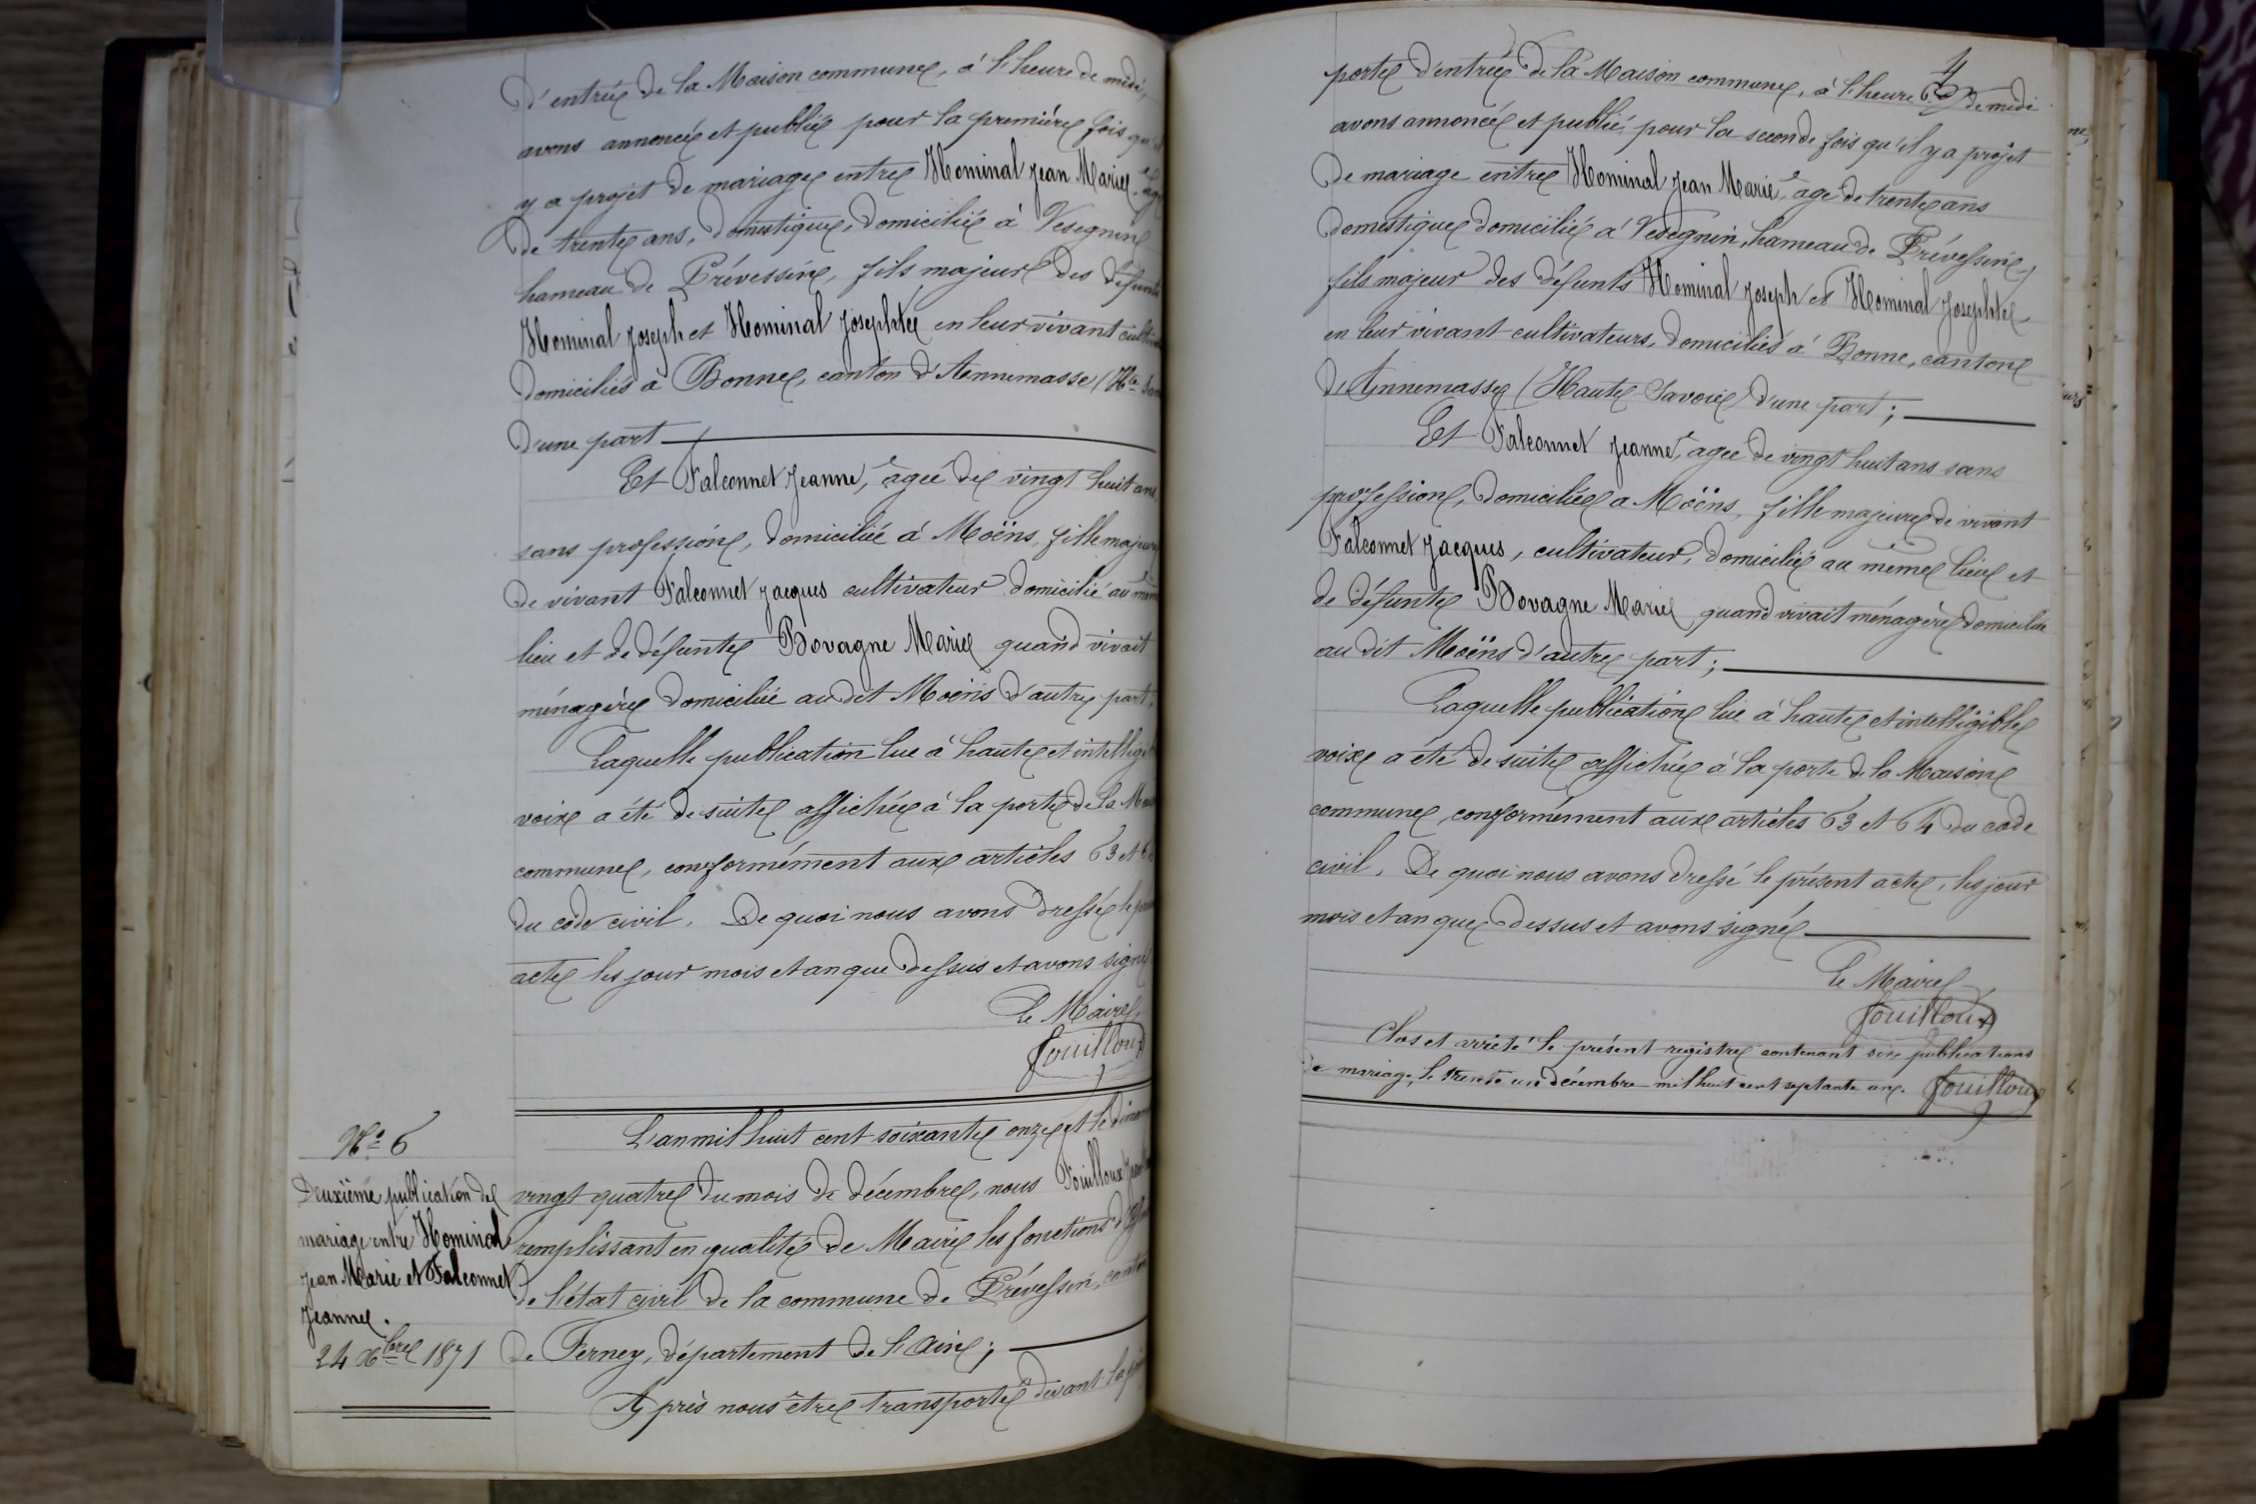 d'entrée de la Maison commune, à l'heure de midi,
avons annoncé et publié pour la première fois qu'il
y a projet de mariage entre Hominal Jean Marie, âgé
de trente ans, domestique, domicilié à Vesegnin
hameau de Prévessin, fils majeur des défunts
Hominal Joseph et Hominal Josephte en leur vivant
domiciliés à Bonne, canton d'Annemasse (Hte
d'une part
Et Falconnet Jeanne, âgée de vingt huit ans
sans profession, domiciliée à Moëns, fille majeure
de vivant Falconnet Jacques cultivateur domicilié au même
lieu et de défunte Bovagne Marie quand vivait
ménagère domiciliée au dit Moëns d'autre part,
Laquelle publication lue à haute et
voix a été de suite affichée à la porte de la
commune, conformément aux articles 63 et
du code civil. De quoi nous avons dressé le
acte les jour mois et an que dessus et avons signé
Le Maire,
Fouilloux
Nº 6
Deuxième publication de
mariage entre Hominal
Jean Marie et Falconnet
Jeanne.
24 Xbre 1871
L'an mil huit cent soixante onze et le
vingt quatre du mois de décembre, nous Fouilloux
remplissant en qualité de Maire les fonctions
de l'état civil de la commune de Prévessin, canton
de Ferney, département de l'Ain;
Après nous être transporté devant la
4
porte d'entrée de la Maison commune, à l'heure de midi
avons annoncé et publié, pour la seconde fois qu'il y a projet
de mariage entre Hominal Jean Marie, âgé de trente ans
domestique domicilié à Vesegnin, hameau de Prévessin,
fils majeur des défunts Hominal Joseph et Hominal Josephte
en leur vivant cultivateurs, domiciliés à Bonne, canton
d'Annemasse (Haute Savoie) d'une part;
Et Falconnet Jeanne, âgée de vingt huit ans sans
profession, domiciliée a Moëns, fille majeure de vivant
Falconnet Jacques, cultivateur, domicilié au même lieu et
de défunte Bovagne Marie quand vivait ménagère domiciliée
au dit Moëns d'autre part;
Laquelle publication lue à haute et intelligible
voix a été de suite affichée à la porte de la Maison
commune, conformément aux articles 63 et 64 du code
civil. De quoi nous avons dressé le présent acte, les jour
mois et an que dessus et avons signé
Le Maire
Fouilloux
Clos et arrêté le présent registre contenant six publications
de mariage, le trente un décembre mil huit cent septante un. Fouilloux